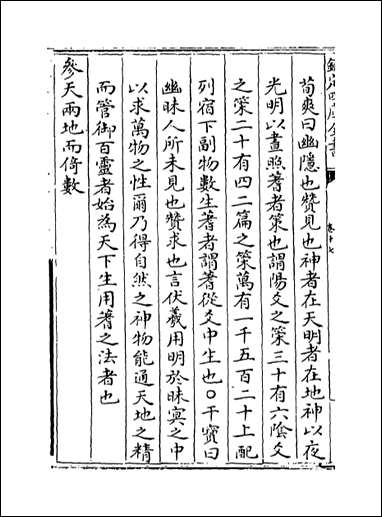 欽定四庫全書
卷十七
荀爽曰幽隱也贊見也神者在天明者在地神以夜
光明以晝照蓍者策也謂陽爻之策三十有六陰爻
之策二十有四二篇之策萬有一千五百二十上配
列宿下副物數生蓍者謂蓍從爻中生也○干寳曰
幽昧人所未見也贊求也言伏羲用明於昧冥之中
以求萬物之性爾乃得自然之神物能通天地之精
而管御百靈者始為天下生用蓍之法者也
參天兩地而倚數